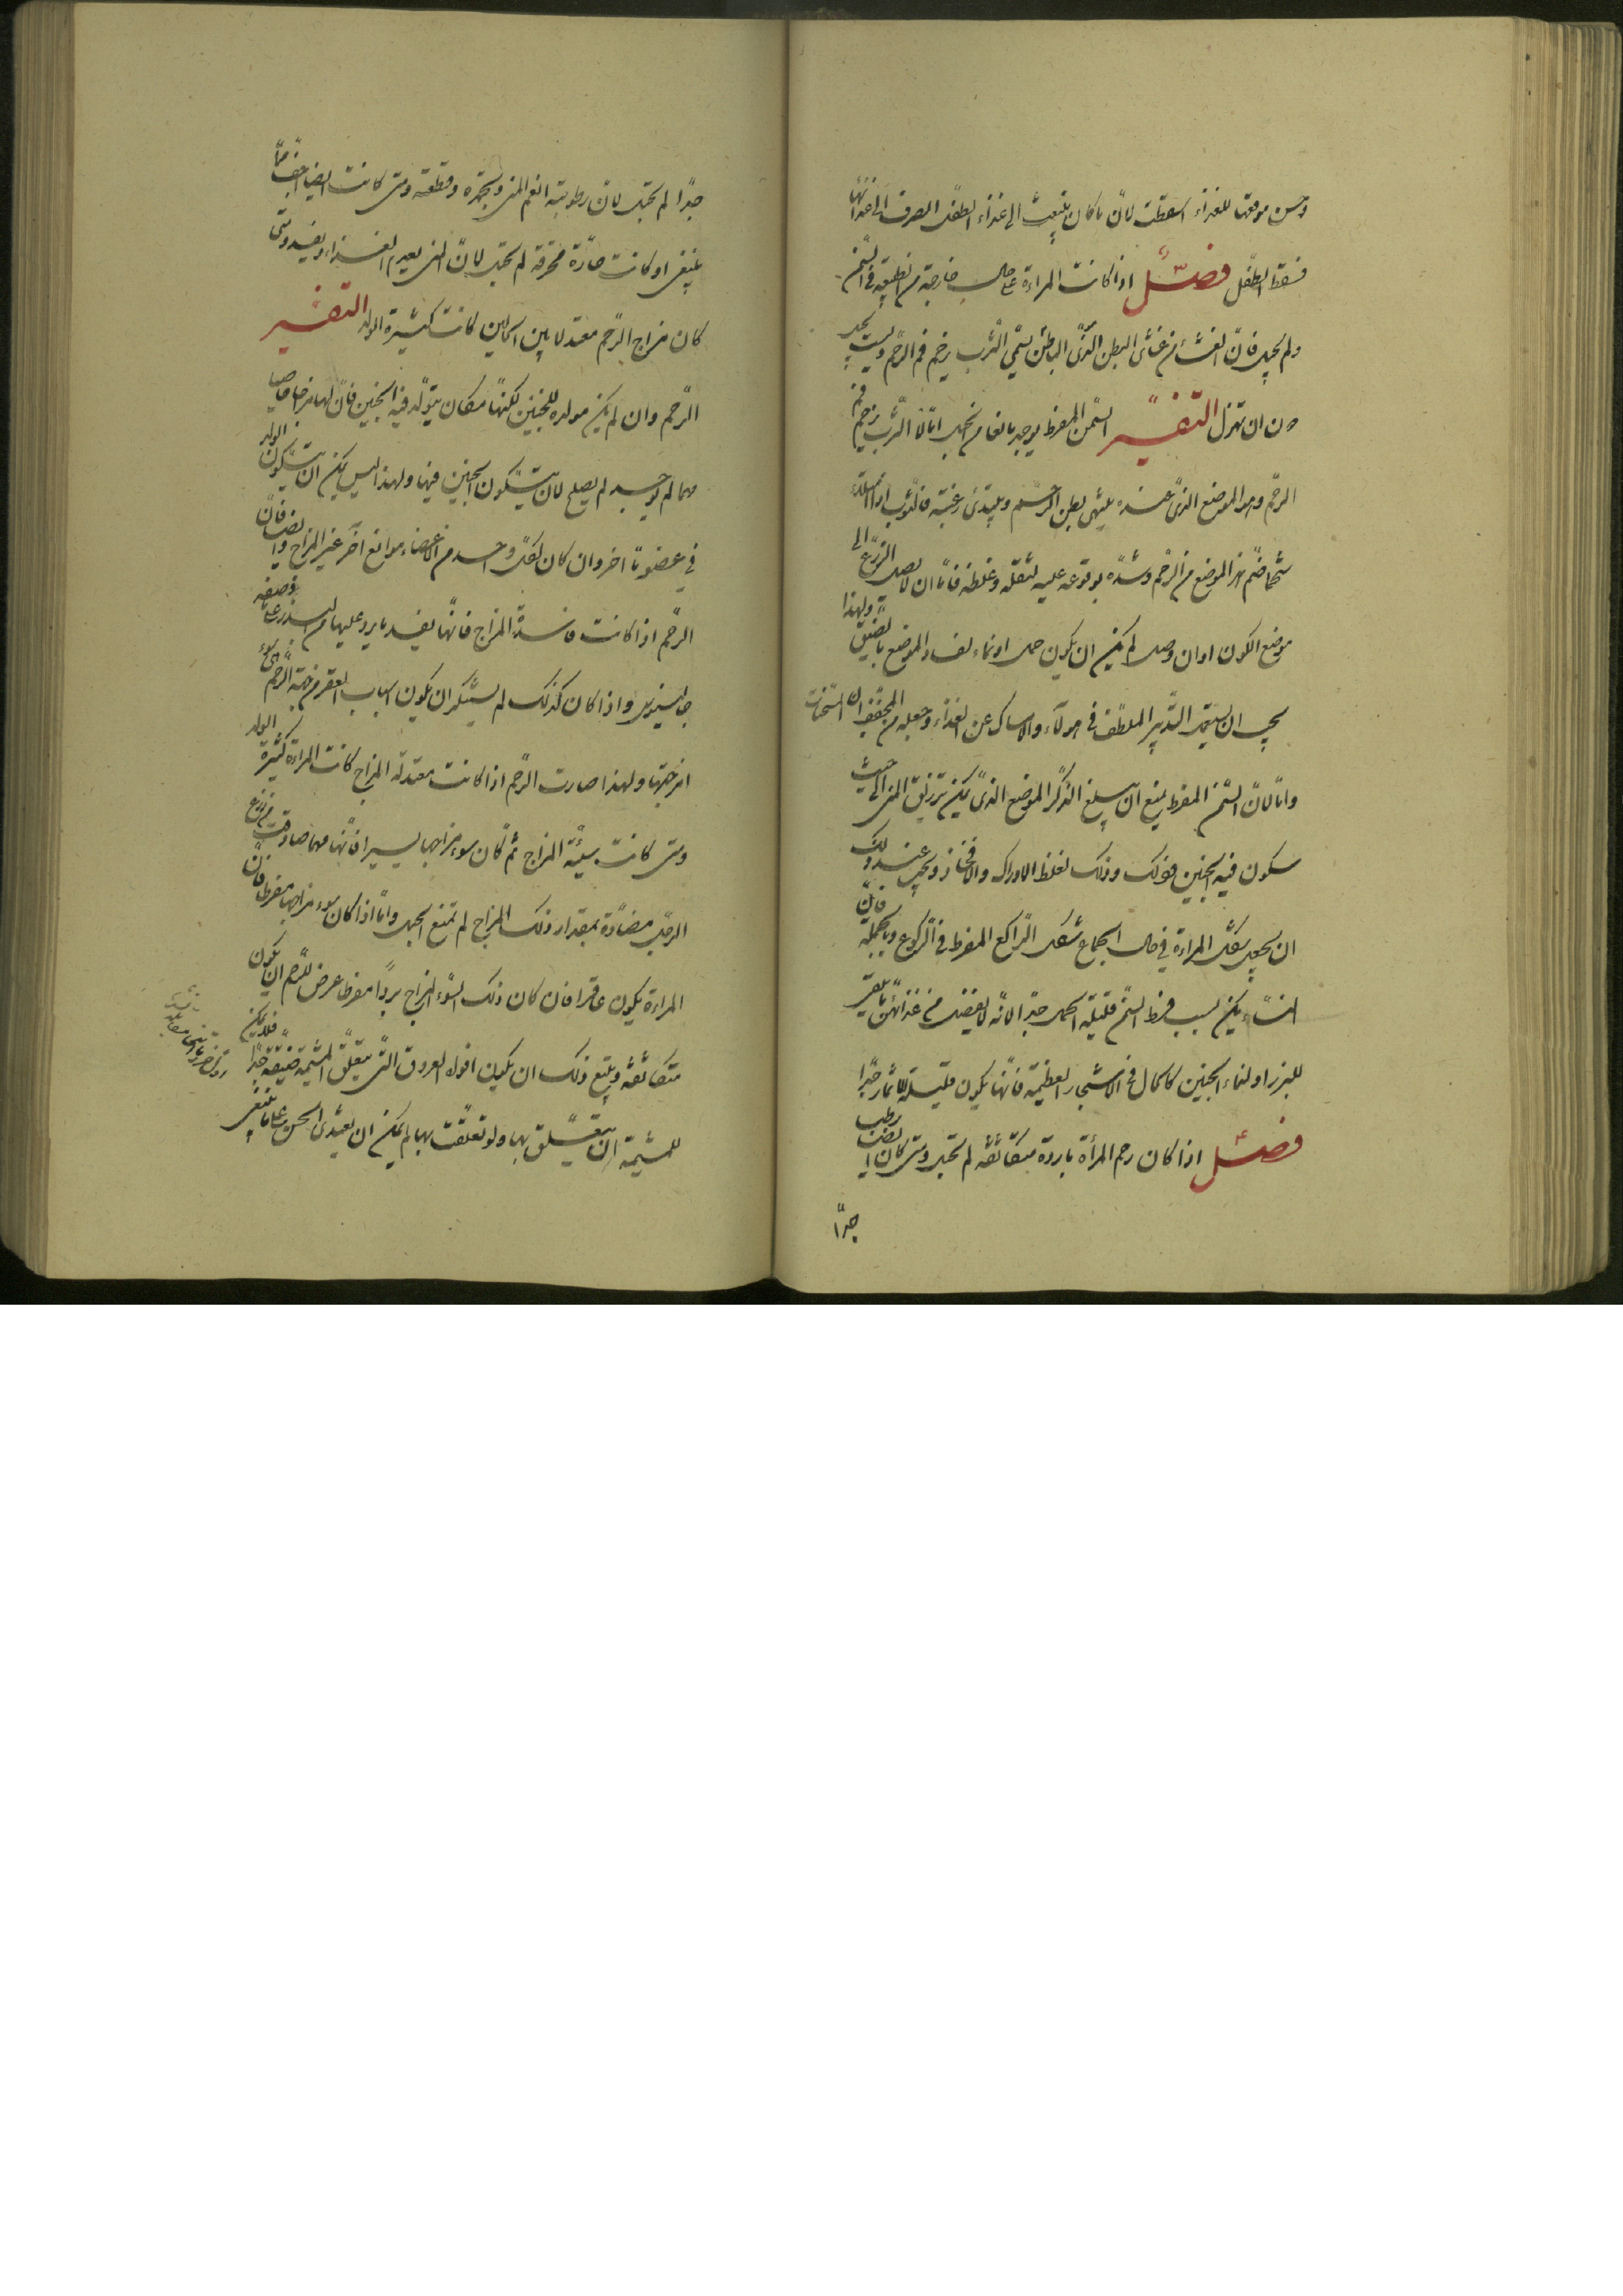 وحسن موقعها للغذاء اسقطت لان ما كان ينبعث الى غذاء الطفل انصرف الى غذائها
فسقط الطفل فصل اذا كانت المراءة على حال خارجة من الطبيعة فى السمن
ولم تحبل فان الغشاء من غشائى البطن الذى الباطن يسمى الثرب يزحم فم الرحم وليست تحبل
دون ان تهزل التفسير السمن المفرط يوجد مانعا من الحبل اما لان الثرب يزحم فم
الرحم وهو الموضع الذى عنده ينتهى بطن الرحم ويبتدئ رقبته فالثرب اذا امتلاء
شحما ضم هذا الموضع من الرحم وشده بوقوعه عليه لثقله وغلظه فاما ان لا يصل الزرع الى
موضع الكون او ان وصل لم يمكن ان يكون حمل او نماء لفساد الموضع بالضيق ولهذا
يجب ان يستعمل التدبير الملطف فى هولاء والامساك عن الغذاء وجعله من المجففات المسخنات
واما لان السمن المفرط يمنع ان يبلغ الذكر الموضع الذى يمكن تزريق المنى الى حيث
يتكون فيه الجنين فى ذلك وذلك لغلظ الاوراك والافخاذ ويجب عند ذلك
ان يجعل شكل المراءة فى حال الجماع شكل الراكع المفرط فى الركوع وبالجملة فان
النساء يكن بسبب فرط السمن قليلة الحمل جدا لانه لا يفضل من غذائهن ما يبقى
للبزر او لنماء الجنين كالحال فى الاشجار العظيمة فانها يكون قليلة الاثمار جدا
فصل اذا كان رحم المرأة باردة متكاثفة لم تحبل ومتى كان ايضا رطب
جدا
جدا لم تحبل لان رطوبته تغم المنى وتجمده وتطفئه ومتى كانت ايضا اجف مما
ينبغى او كانت حارة محرقة لم تحبل لان المنى يعدم الغذاء ويفسد ومتى
كان مزاج الرحم معتدلا بين الحالين كانت كثيرة الولد التفسير
الرحم وان لم يكن مولده للجنين لكنها مكان يتولد فيه الجنين فان لها مزاجا خاصيا
مهما لم يوجد لم يصلح لان يتكون الجنين فيها ولهذا ليس يمكن ان يتكون الولد
فى عضو ما اخر وان كان لكل واحد من الاعضاء موانع اخر غير المزاج وايضا فان
الرحم اذا كانت فاسدة المزاج فانها يفسد ما يرد عليها من البذر على ما وصفه
جالينوس واذا كان كذلك لم يستنكر ان يكون اسباب العقر من جهة الرحم هى سوء
امزجتها ولهذا صارت الرحم اذا كانت معتدلة المزاج كانت المراءة كثيرة الولد
ومتى كانت سيئة المزاج ثم كان سوء مزاجها يسيرا فانها مهما صادفت من زرع
الرجل مضادة بمقدار ذلك المزاج لم تمنع الحبل واما اذا كان سوء مزاجها مفرطا فان
المراءة يكون عاقرا فان كان ذلك السوء المزاج بردا مفرطا عرض للرحم ان يكون
متكاثفة ويتبع ذلك ان يكون افواه العروق التى يتعلق المشيمة ضيقة جدا فلا يمكن
للمشيمة ان يتعلق بها ولو تعلقت بها لم يمكن ان يغتذى الجنين على ما ينبغى